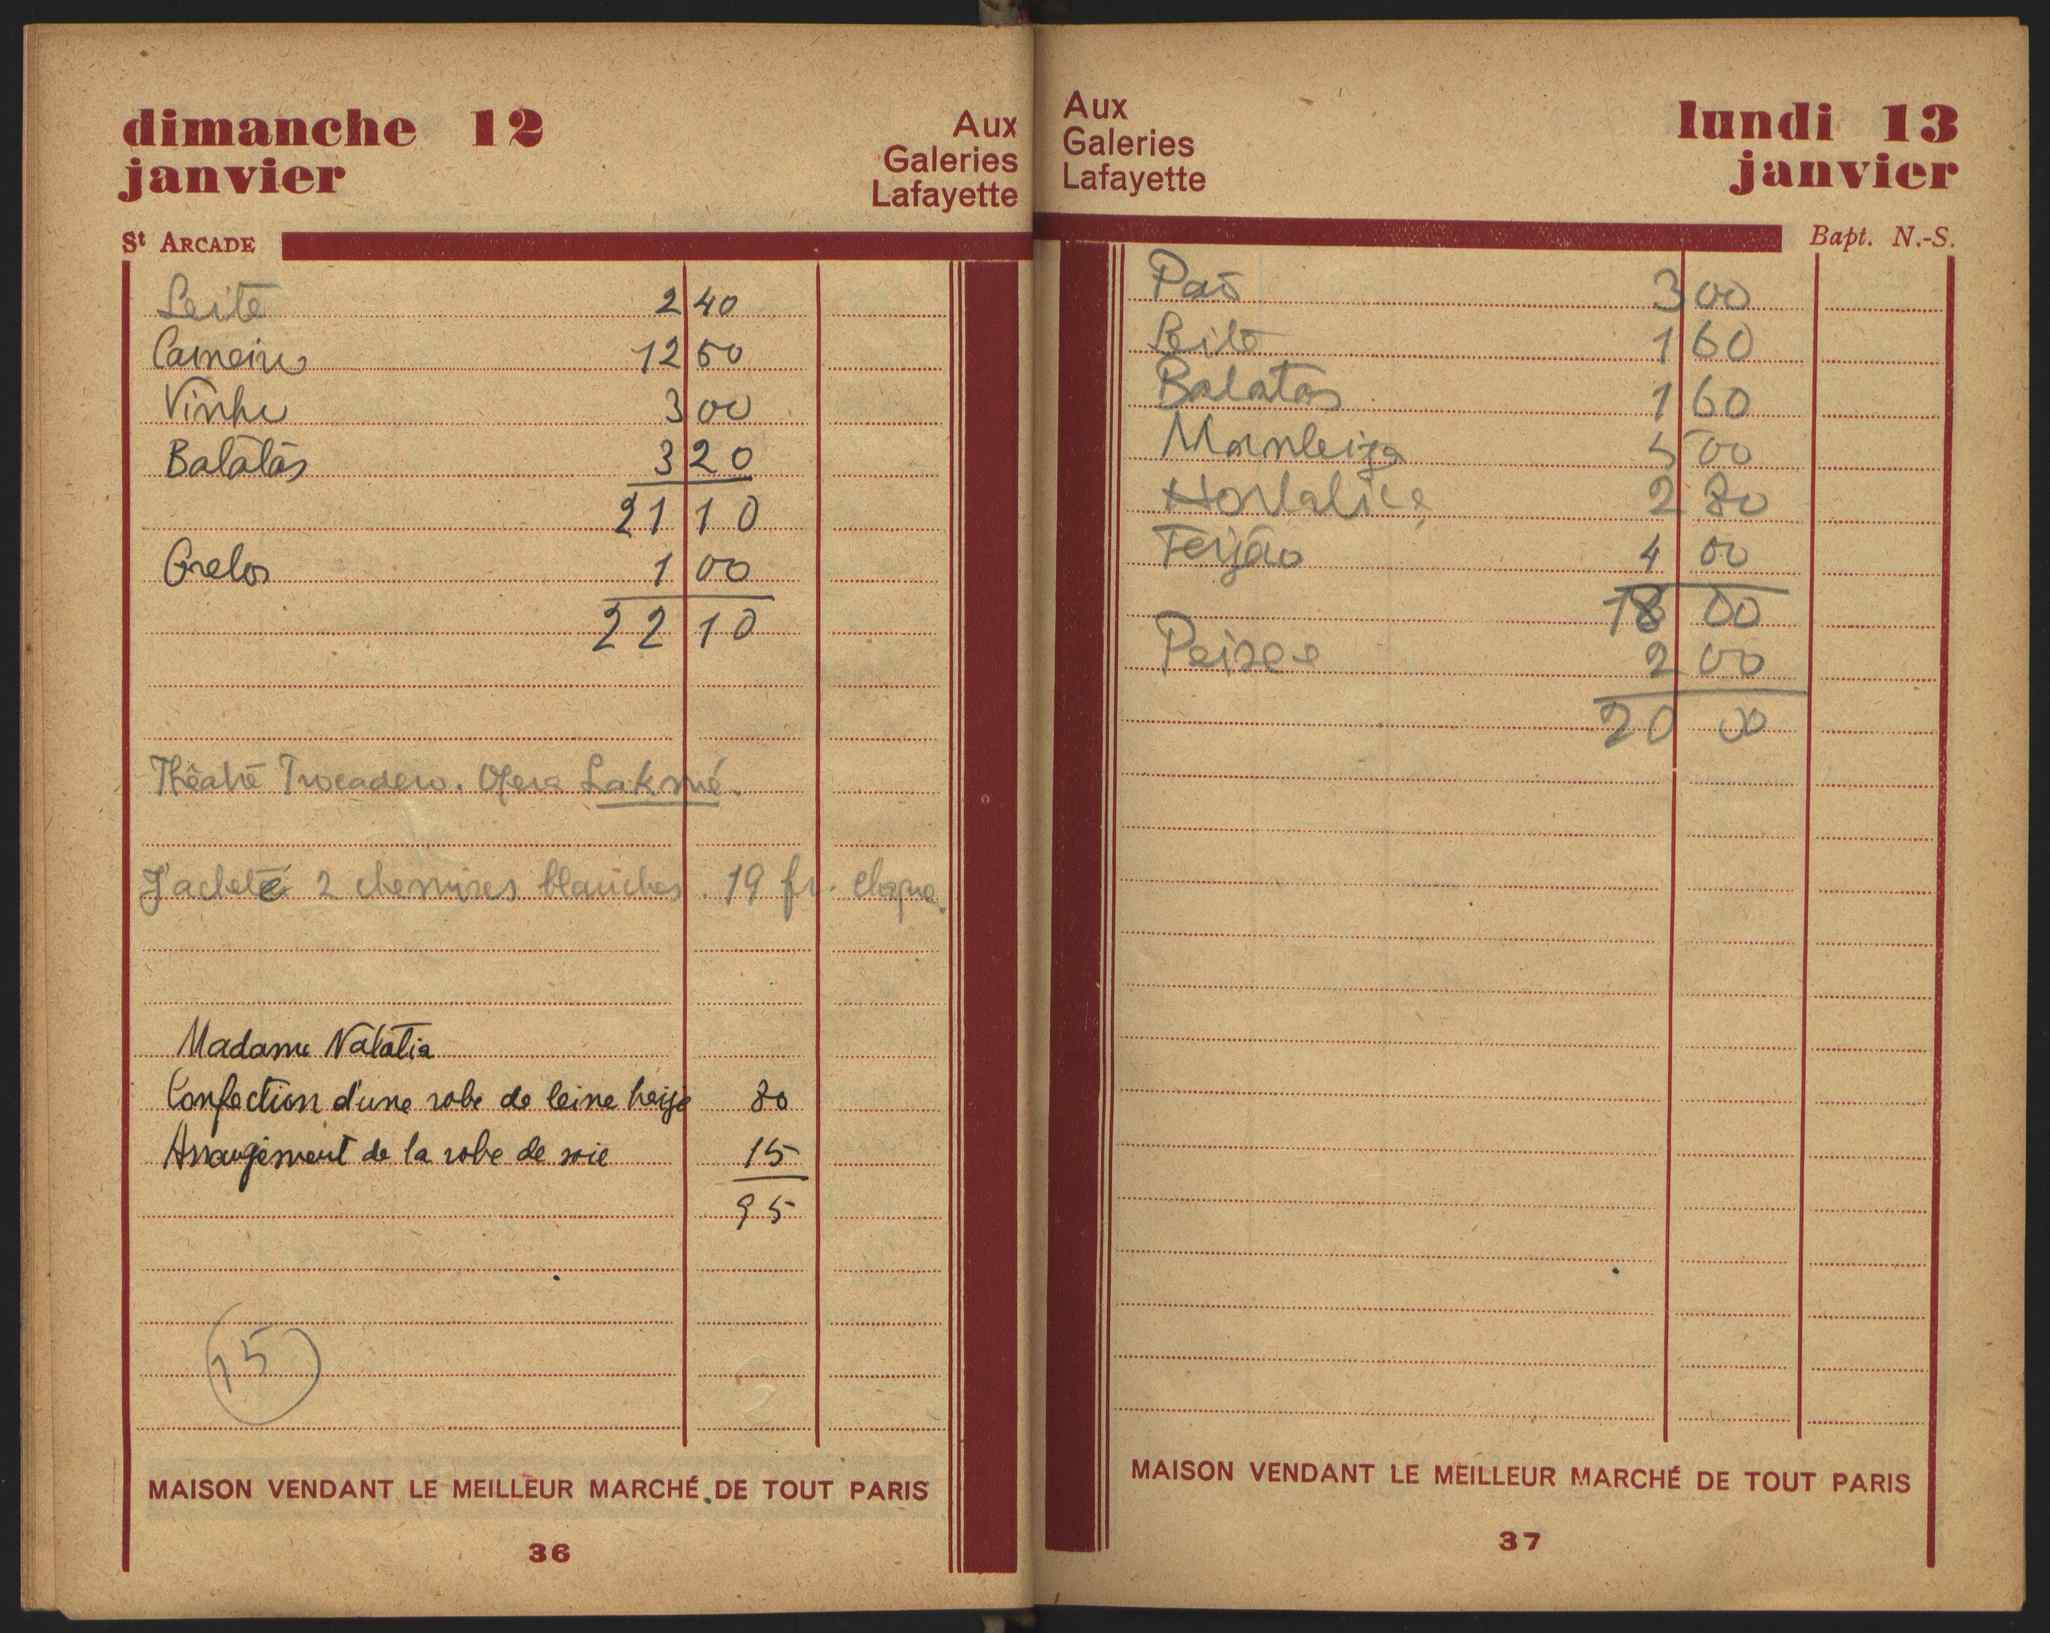 dimanche 12
janvier
Aux
Galeries
Lafayette
St ARCADE
Leite 2 40
Carneiro 12 50
Vinho 3 00
Batatas 3 20
21 10
Grelos 1 00
22 10
Théatre Trocadero. Opera Lakmé.
J'acheté 2 chemises blanches. 19 fr. chaque.
Madame Natalia
Confection d'une robe de leine beije 80
Arrangement de la robe de soie 15
95
15
MAISON VENDANT LE MEILLEUR MARCHÉ DE TOUT PARIS
36
Aux
Galeries
Lafayette
lundi 13
janvier
Bapt. N.-S.
Pão 3 00
Leite 1 60
Batatas 1 60
Manteiga 5 00
Hortaliça 2 80
Feijão 4 00
18 00
Peixe 2 00
20 00
MAISON VENDANT LE MEILLEUR MARCHÉ DE TOUT PARIS
37